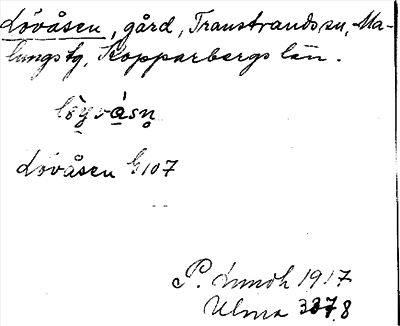 Lövåsen, gård, Transtrands sn, Ma-
lungs tg, Kopparbergs län.
Lövåsen G 107
P. Lundh 1917
Ulma 387,8